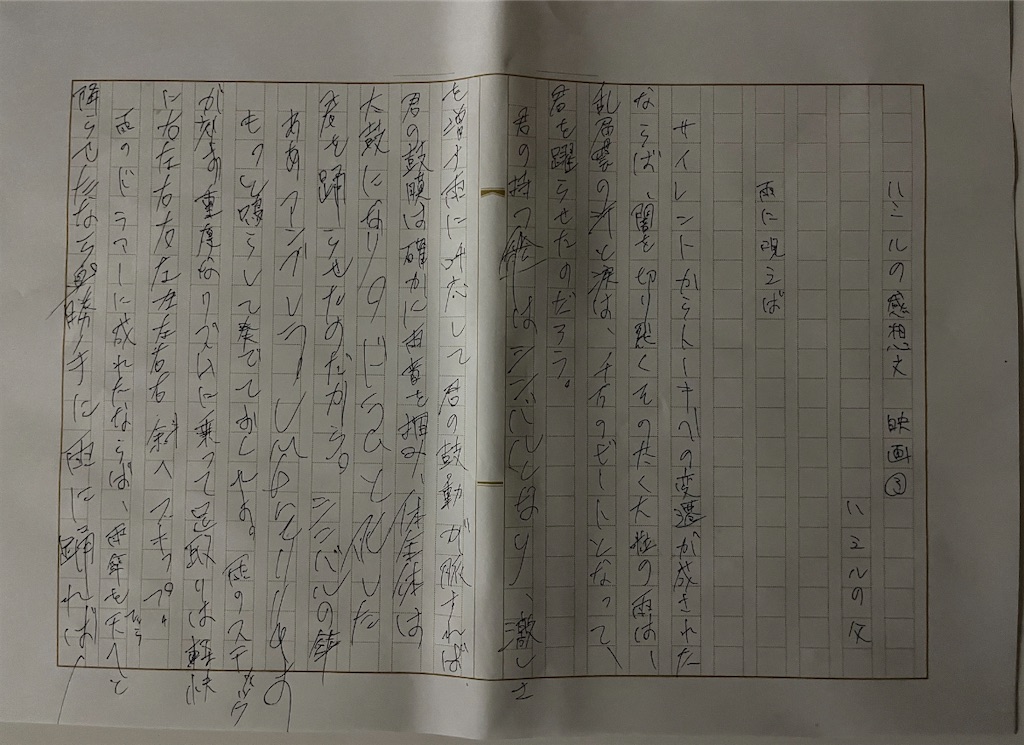 ハミルの感想文　映画③
ハミルの父
雨に唄えば
サイレントからトーキーへの変遷が成された
ならば、闇を切り裂くそのたく大粒の雨は、
乱層雲の汗と涙は、千古のビートとなって、
君を躍らせたのだろう。
君の持つ傘はシンバルとなり、激しさ
を増す雨に呼応して君の鼓動が脈すれば、
君の鼓膜は確かに雨音を掴み、体全体は
太鼓になりひとつと化した
君を踊らせたのだから。シンバルの傘
ああアンブレラ
もの鳴らして奏でておくれよ。雨のスティック
が刻む重度なリズムに乗って足取りは軽快
に右左右左左左右右斜へスキップ。
雨のドラマーに成れたならば、雨傘を天へと
降らせたなら身勝手に雨に踊れば